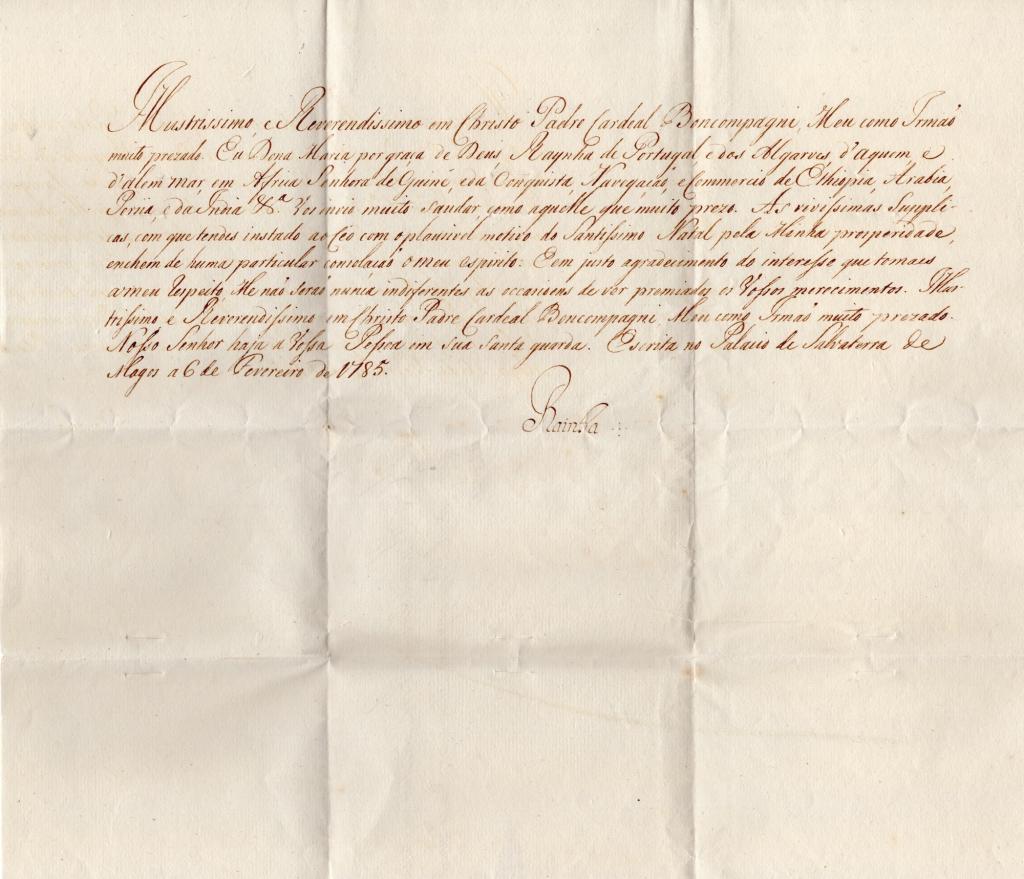 Illustrissimo, e Reverendissimo em Christo Padre Cardeal Boncompagni, Meu como Irmaõ
muito prezado. Eu Dona Maria por graça de Deus, Raynha de Portugal e dos Algarves, d'aquem, e
d'alem mar, em Africa Senhora de Guiné, e da Conquista, Navegaçaõ, e Commercio de Ethiopia, Arabia,
Persia, e da India &.ª Vos envio muito saudar, como aquelle que muito prezo. As vivissimas Suppli-
cas, com que tendes instado ao Céo com o plausivel motivo do Santissimo Natal pela Minha prosperidade,
enchem de huma particular consolaçaõ o meu espirito: E em justo agradecimento do interesse que tomaes
a meu respeito, Me naõ seraõ nunca indiferentes as occasioens de ver premiados os Vossos merecimentos. Illus-
trissimo e Reverendissimo em Christo Padre Cardeal Boncompagni, Meu como Irmaõ muito prezado.
Nosso Senhor haja a Vossa Pessoa em sua santa guarda. Escrita no Palacio de Salvaterra de
Magos a 6 de Fevereiro de 1785.
Rainha